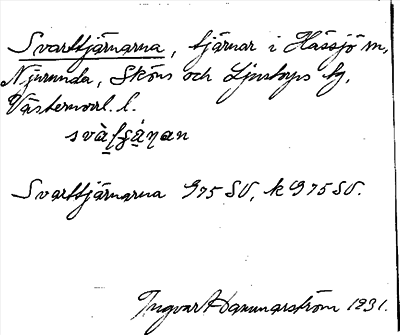 Svarttjärnarna, tjärnar i Hässjö m,
Njurunda, Sköns och Ljustorps sg,
Västernorrl. l.
Svarttjärnarna G 75 SV, k G 75 SV.
Ingvar Hammarström 1931.